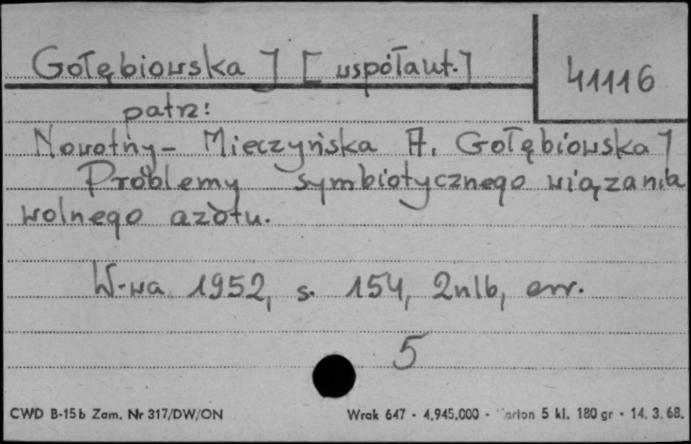 Gołębiowska J [współaut.]
41116
patrz:
Nowotny-Mieczyńska A. Gołębiowska J
Problemy symbiotycznego wiązania
wolnego azotu.
W-wa 1952, s. 154, 2nlb, err.
5
CWD B-15b Zam. Nr 317/DW/ON
Wrak 647 - 4.945.000 - 5 kl. 180 gr - 14. 3. 68.